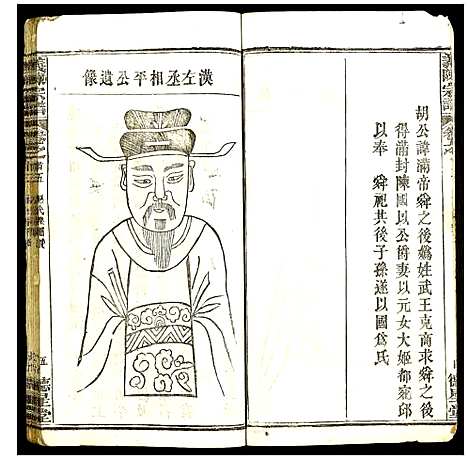 胡公諱滿帝舜之後媯姓武王克商求舜之後
得滿封陳國以公爵妻以元女大姬都宛邱
以奉 舜祀其後子孫遂以國爲氏
德星堂
漢左丞相平公遺像
義陳宗譜
五
德星堂